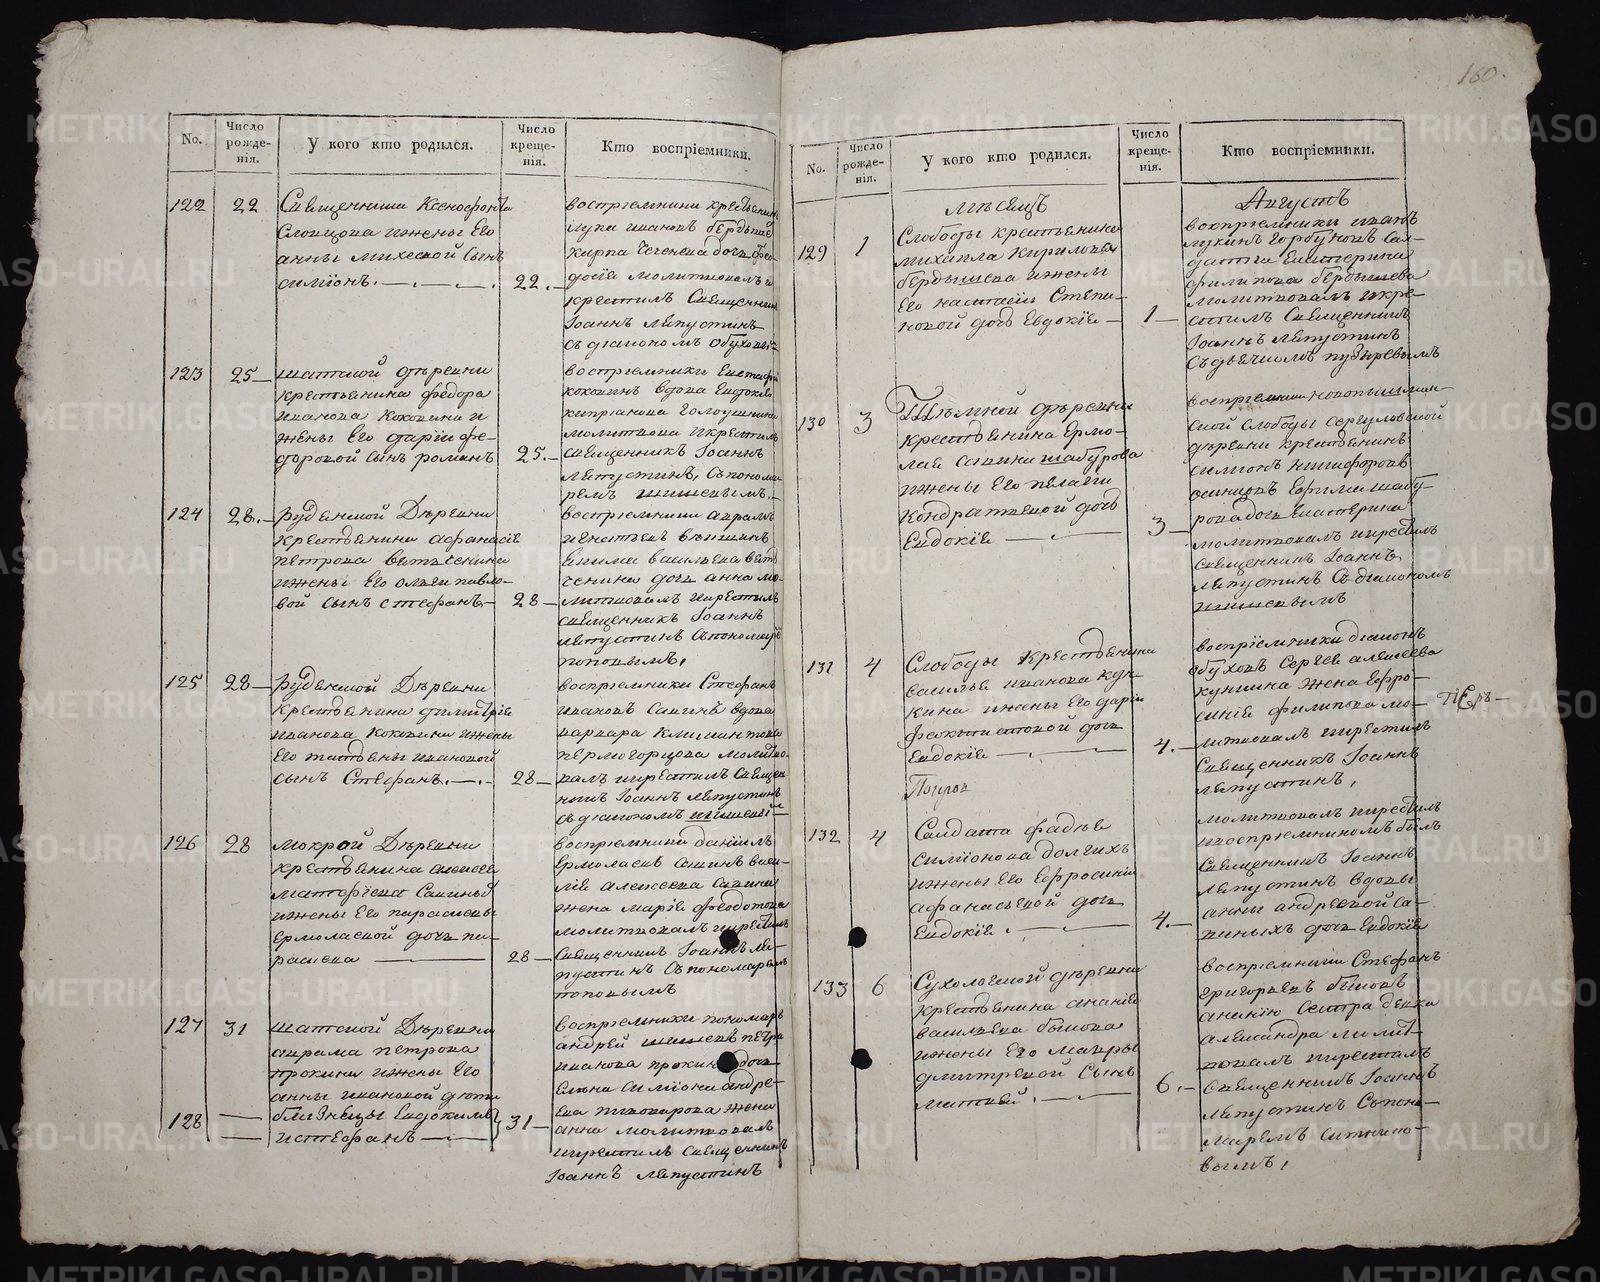 160.
No.
Число рожде-нія.
У кого кто родился.
Число креще-нія.
Кто воспріемники.
122
22
Священника Ксенофонта
Словцова ижены Его
анны михеевой Сынъ
симіонъ.
22.
воспріемники крестьянинъ
лука ивановъ бердышевъ
карпа Чеченева дочь фео-
досіѣ молитвовалъ и
крестилъ Священникъ
Іоаннъ ляпустинъ
съ діакономъ обуховымъ
123
25
шатской дѣревни
крестьянина федора
иванова коковина и
жены Его даріи фе-
доровой сынъ романъ
25.
воспріемники Евстафи
коковинъ вдова Евдокія
кипріанова голоушкина
молитвова икрестилъ
священникъ Іоаннъ
ляпустинъ, съ понома-
ремъ шишевымъ.
124
28.
Рудянской Дѣревни
крестьянина афанасіѣ
петрова вятченина
ижены Его олѣги павло-
вой сынъ стефанъ
28
воспріемники аврамъ
якима васильева вят-
ченина дочь анна мо-
литвовалъ икрестилъ
священникъ Іоаннъ
ляпустинъ съ пономарѣ
поповымъ,
125
28
Рудянской Дѣревни
крестьянина димитріѣ
иванова коковина ижены
Его татьяны ивановой
сынъ Стефанъ.
28
воспріемники Стефанъ
ивановъ Савинъ вдова
варвара климантова
пермогорцова молитво-
валъ икрестилъ Священ-
никъ Іоаннъ ляпустинъ
съ діакономъ шишевы
126
28
мокрой Дѣревни
крестьянина алексѣѣ
матфіева Савиныхъ
ижены Его парасковьи
ермолаевой дочь па-
расковѣ
28
воспріемники даніилъ
Ермолаевъ Савинъ васи-
ліѣ алексеева Савина
жена маріѣ федотова
молитвовалъ икрестилъ
Священникъ Іоаннъ ля-
пустинъ съ пономаремъ
поповымъ
127
31
шатской Дѣревни
аврама петрова
прокина ижены Его
анны ивановой дѣти
128
близнецы Евдокимъ
истефанъ
31
воспріемники пономарь
андрей шишевъ петра
иванова прокина дочь
Елѣна симіона андре-
ева пивоварова жена
анна молитвовалъ
икрестилъ священникъ
Іоаннъ ляпустинъ
No.
Число рожде-нія.
У кого кто родился.
Число креще-нія.
Кто воспріемники.
мѣсяцъ
Августъ
129
1
Слободы крестьянина
михаила Кирилова
бердышева ижены
Его настасіи Степа-
новой дочь Евдокіѣ
1
воспріемники иванъ
лукинъ горбуновъ Сал-
датка Екатерина
филипова бердышева
молитвовалъ икре-
стилъ Священникъ
Іоаннъ ляпустинъ
Съ дьячкомъ пузыревымъ
130
3
Тѣмной дѣревни
крестьянина Ермо-
лаѣ Савина шабурова
ижены Его пелагіи
кондратьевой дочь
Евдокіѣ
3
воспріемники новопышмин-
ской слободы сергуловской
дѣревни крестьянинъ
симіонъ никифоровъ
осинцовъ Ефима шабу-
рова дочь Екатерина
молитвовалъ икрестилъ
священникъ Іоаннъ
ляпустинъ Съ діакономъ
шишевымъ
131
4
Слободы крестьянина
василіѣ иванова кук-
кина ижены Его даріи
Евдокіѣ
4.
воспріемники діаконъ
обуховъ Сергѣѣ алексеева
кункина жена Ефро-
сініѣ филипова мо-
литвовалъ икрестилъ
Священникъ Іоаннъ
ляпустинъ,
132
4
Салдата фадѣѣ
симіонова долгихъ
ижены Его Ефросиніи
афанасьевой дочь
Евдокіѣ.
4.
молитвовалъ икрестилъ
ивоспріемникомъ былъ
Священникъ Іоаннъ
ляпустинъ вдовы
анны андреевой Са-
виныхъ дочь Евдокіѣ
133
6
Сухоложской дѣревни
крестьянина ананіѣ
васильева быкова
ижены Его мавры
дмитревой Сынъ
матвей.
6.
воспріемники Стефанъ
григорьевъ быковъ
ананію Сестра девка
александра молит-
вовалъ икрестилъ
Священникъ Іоаннъ
ляпустинъ Съ поно-
маремъ ситнико-
вымъ,